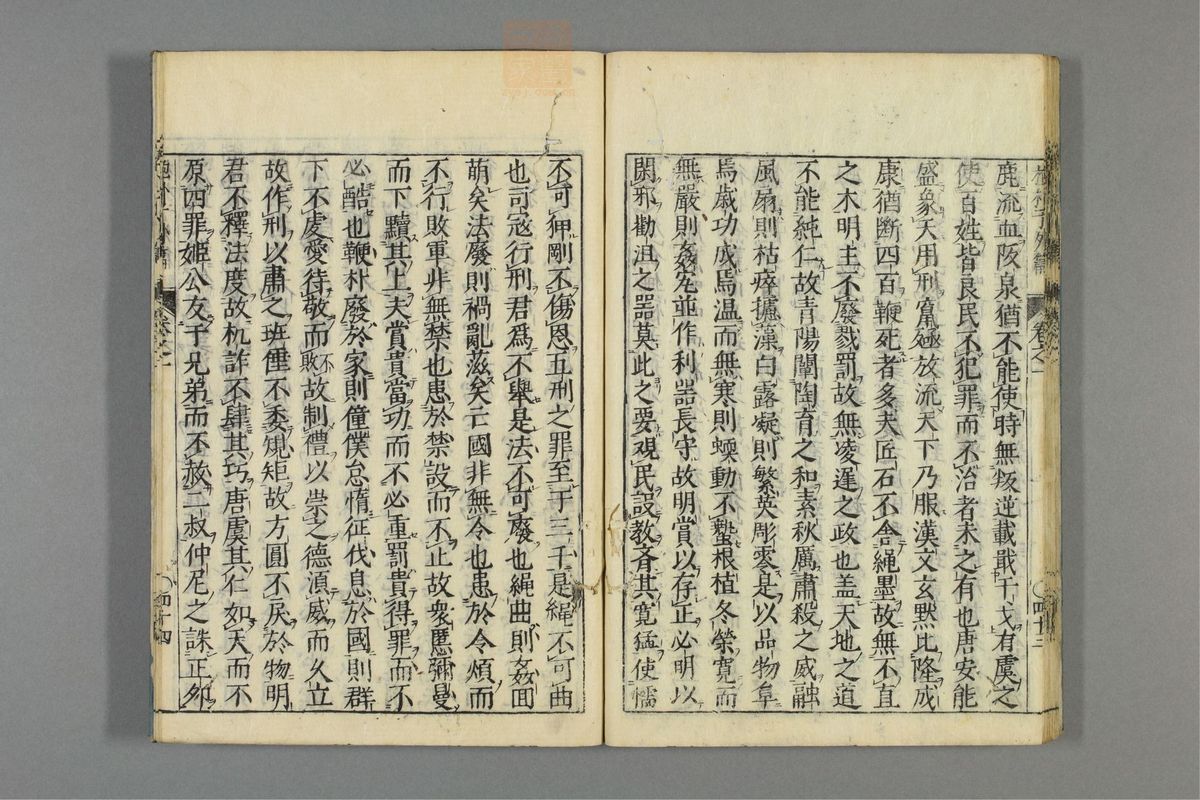 鹿流血阪泉猶不能使時無叛逆載戢干戈有虞之
使百姓皆良民不犯罪而不治者未之有也唐安能
盛象天用刑竄殛放流天下乃服漢文玄默比隆成
康猶斷四百鞭死者多夫匠石不舍繩墨故無不直
之木明主不廢戮罰故無凌遲之政也盖天地之道
不能純仁故青陽闡陶育之和素秋厲肅殺之威融
風扇則枯瘁攄藻白露凝則繁英彫零是以品物阜
焉歲功成焉温而無寒則蝡動不蟄根植冬榮寛而
無嚴則姦宄並作利器長守故明賞以存正必明以
閑邪勸沮之器莫此之要覌民設教斉其寛猛使懦
不可狎剛不傷恩五刑之罪至于三千是繩不可曲
也司冦行刑君爲不舉是法不可廢也繩曲則姦囬
萌矣法廢則禍亂滋矣亡國非無令也患於令煩而
不行敗軍非無禁也患於禁設而不止故衆慝彌曼
而下黷其上夫賞貴當功而不必重罰貴得罪而不
必酷也鞭朴廢於家則僮僕怠惰征伐息於國則群
下不虔愛待敬而不敗故制禮以崇之德湏威而久立
故作刑以肅之班倕不委規矩故方圓不戾於物明
君不釋法度故机詐不肆其巧唐虞其仁如天而不
原四罪姫公友于兄弟而不赦二叔仲尼之誅正夘
卷之一
四十三
四十四